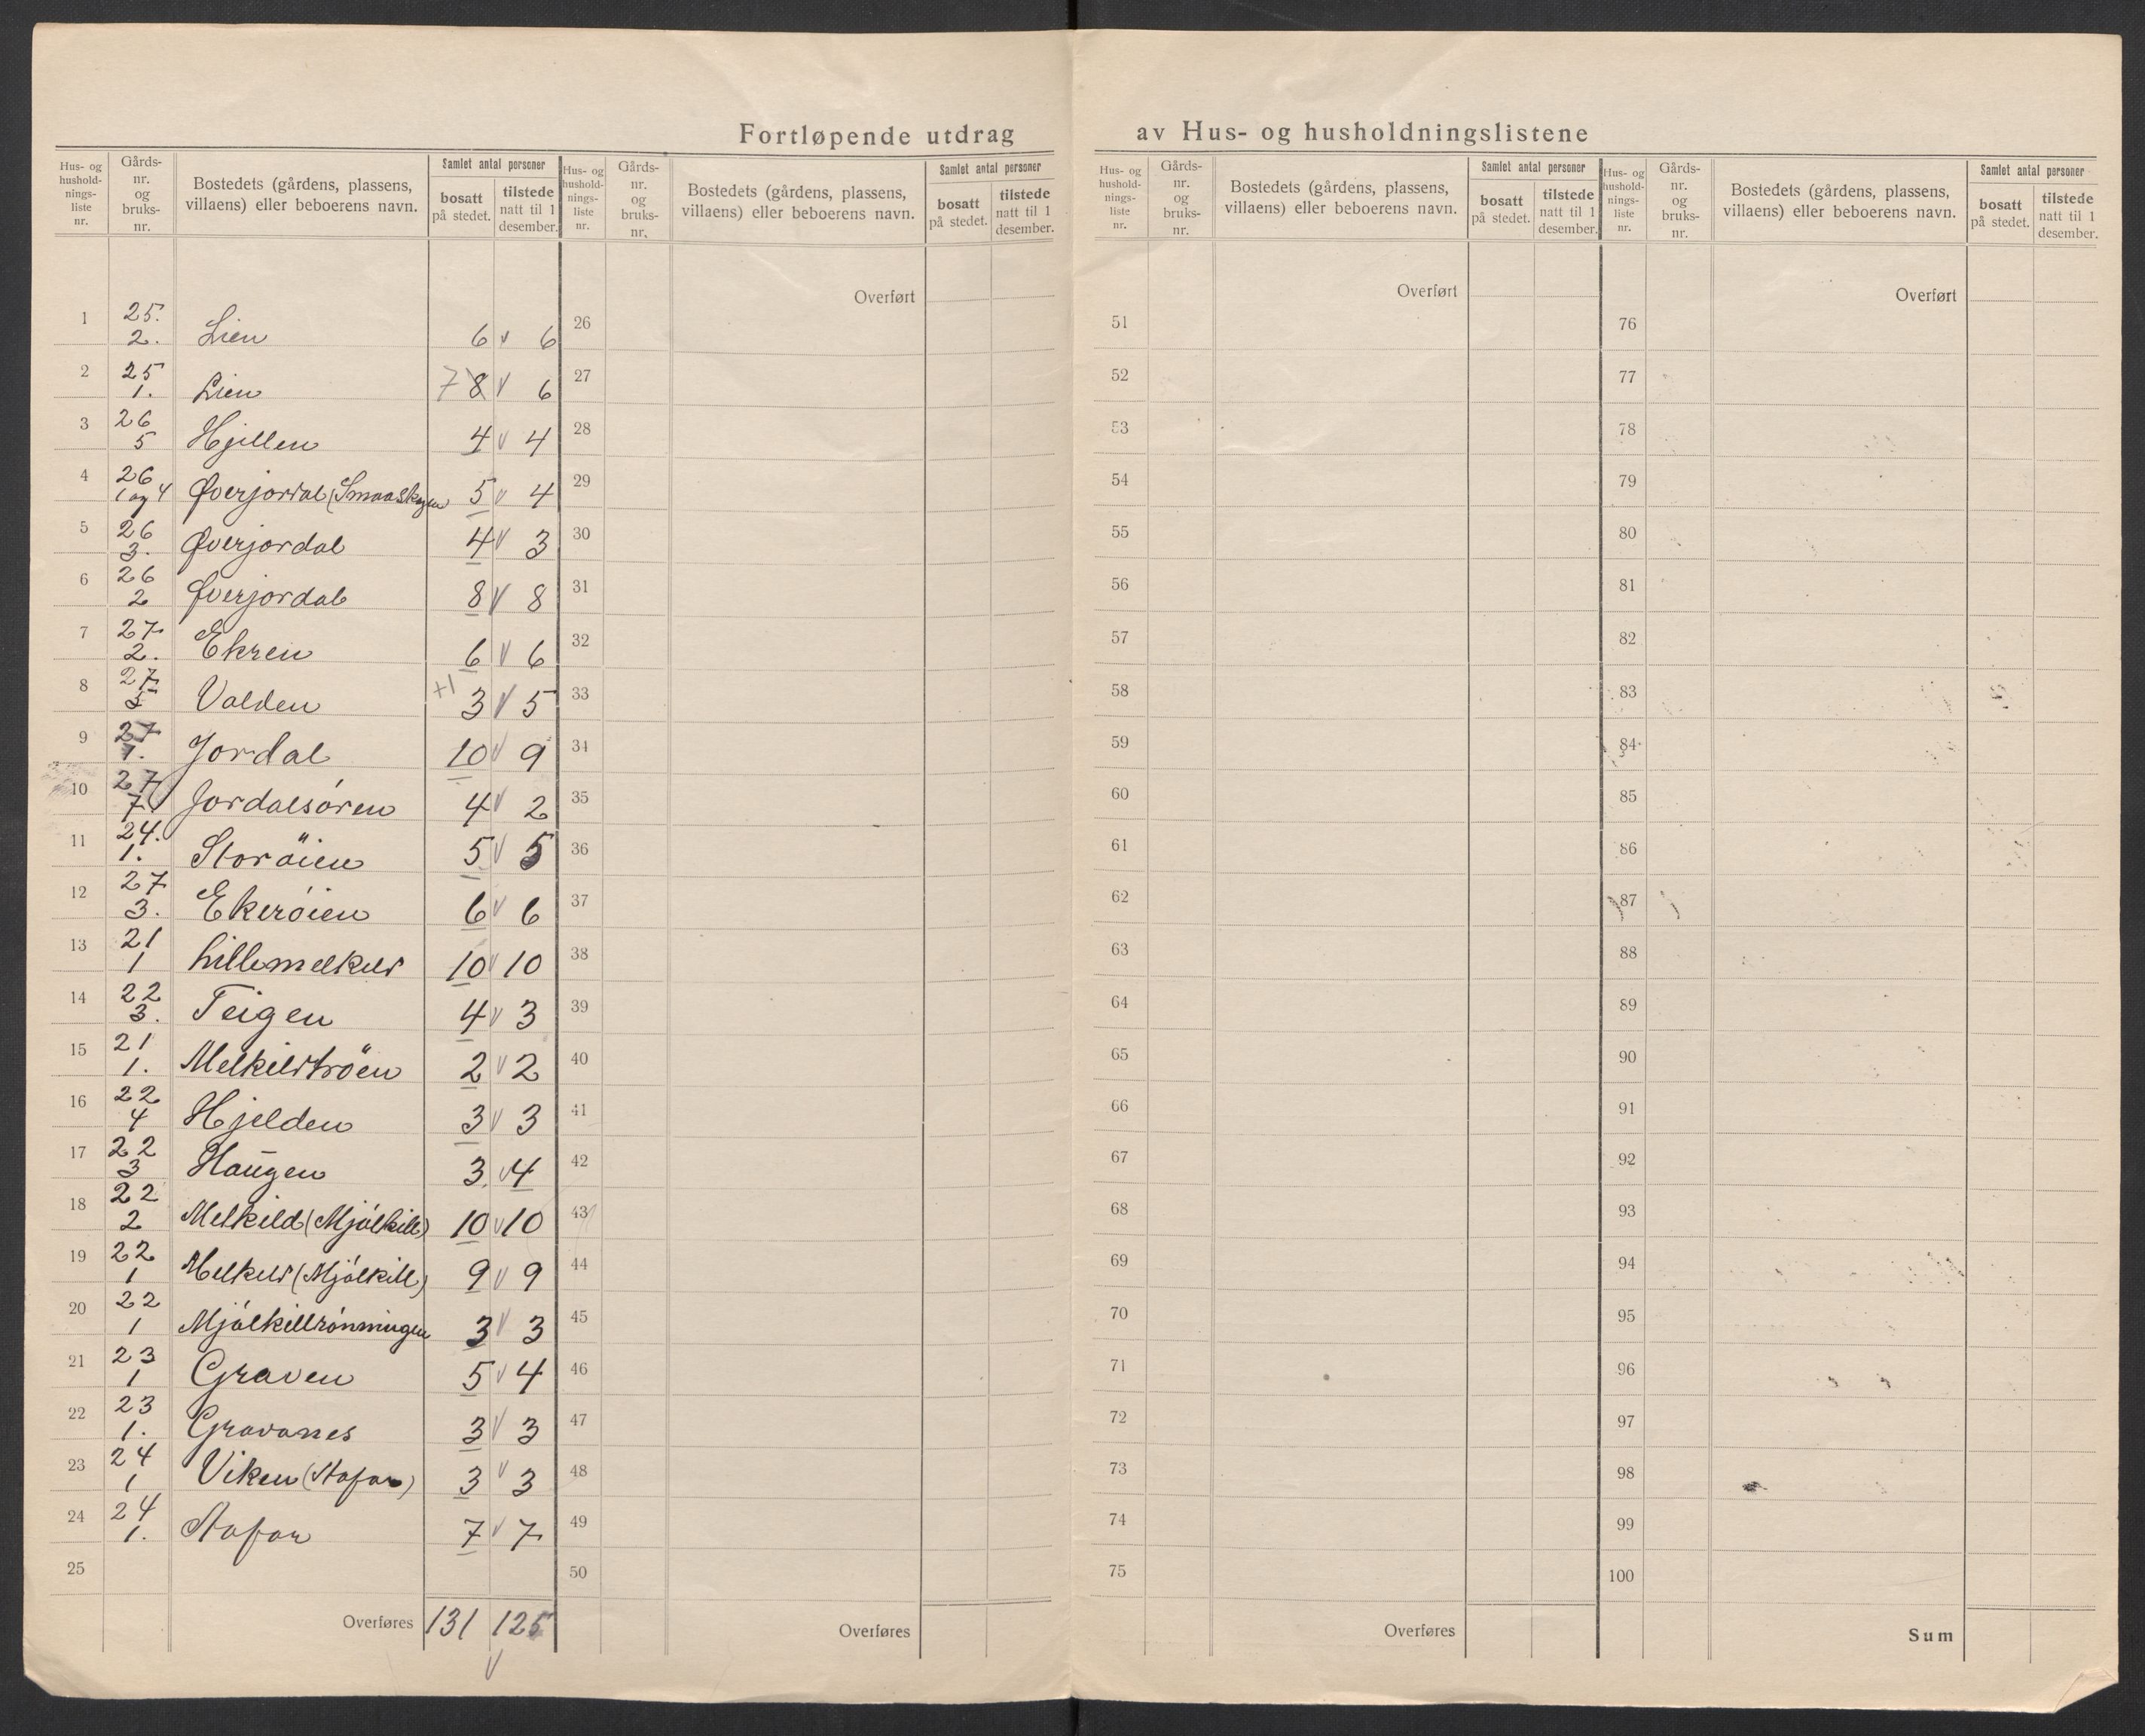 Fortløpende utdrag av Hus- og husholdningslistene
Hus- og hushold-nings-liste nr. | Gårds-nr. og bruks-nr. | Bostedets (gårdens, plassens, villaens) eller beboerens navn. | Samlet antal personer | bosatt på stedet. | tilstede natt til 1 desember.
Hus- og hushold-nings-liste nr. | Gårds-nr. og bruks-nr. | Bostedets (gårdens, plassens, villaens) eller beboerens navn. | Samlet antal personer | bosatt på stedet. | tilstede natt til 1 desember.
Hus- og hushold-nings-liste nr. | Gårds-nr. og bruks-nr. | Bostedets (gårdens, plassens, villaens) eller beboerens navn. | Samlet antal personer | bosatt på stedet. | tilstede natt til 1 desember.
Hus- og hushold-nings-liste nr. | Gårds-nr. og bruks-nr. | Bostedets (gårdens, plassens, villaens) eller beboerens navn. | Samlet antal personer | bosatt på stedet. | tilstede natt til 1 desember.
1 25. 2. Lien 6 v 6
2 25 1. Lien 7 8 v 6
3 26 5 Hjillen 4 v 4
4 26 1 og 4 Øverjordal (Smaaskogen 5 v 4
5 26 3. Øverjordal 4 v 3
6 26 2 Øverjordal 8 v 8
7 27 2. Ekren 6 v 6
8 27 5 Valden +1 3 v 5
9 27 1. Jordal 10 v 9
10 27 7. Jordalsören 4 v 2
11 24. 1. Storöien 5 v 5
12 27 3. Ekeröien 6 v 6
13 21 1 Lillemelkild 10 v 10
14 22 3. Teigen 4 v 3
15 21 1. Melkildtröen 2 v 2
16 22 4 Hjelden 3 v 3
17 22 3 Haugen 3 v 4
18 22 2 Melkild (Mjölkill) 10 v 10
19 22 1 Melkild (Mjölkill) 9 v 9
20 22 1 Mjölkillrönningen 3 v 3
21 23 1 Graven 5 v 4
22 23 1. Gravanes 3 v 3
23 24 1 Viken (Stafar) 3 v 3
24 24 1. Stafar 7 v 7
25
Overføres 131 125
v
Overført
26
27
28
29
30
31
32
33
34
35
36
37
38
39
40
41
42
43
44
45
46
47
48
49
50
Overføres
Overført
51
52
53
54
55
56
57
58
59
60
61
62
63
64
65
66
67
68
69
70
71
72
73
74
75
Overføres
Overført
76
77
78
79
80
81
82
83
84
85
86
87
88
89
90
91
92
93
94
95
96
97
98
99
100
Sum